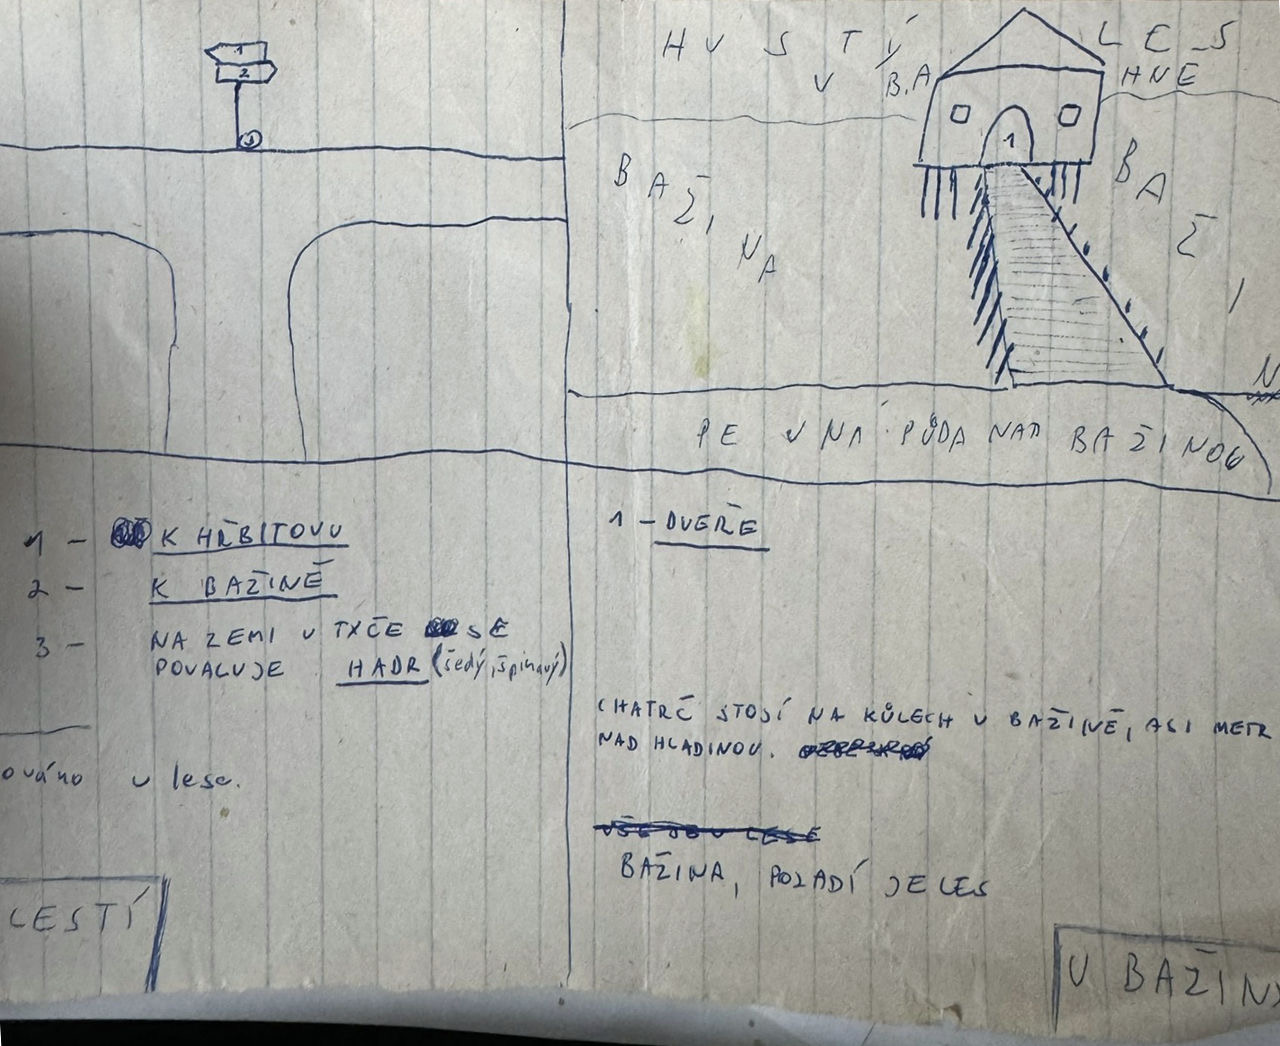 1
2
3
1 - K HŘBITOVU
2 - K BAŽINĚ
3 - NA ZEMI V TXČE SE
POVALUJE HADR (šedý, špinavý)
ováno v lese.
LESTÍ
HUSTÝ LES
V BA HNĚ
BAŽINA
BAŽI
N
1
PEVNÁ PŮDA NAD BAŽINOU
1 - DVEŘE
CHATRČ STOJÍ NA KŮLECH V BAŽINĚ, ASI METR
NAD HLADINOU.
VŠE JE V LESE
BAŽINA, POZADÍ JE LES
U BAŽIN